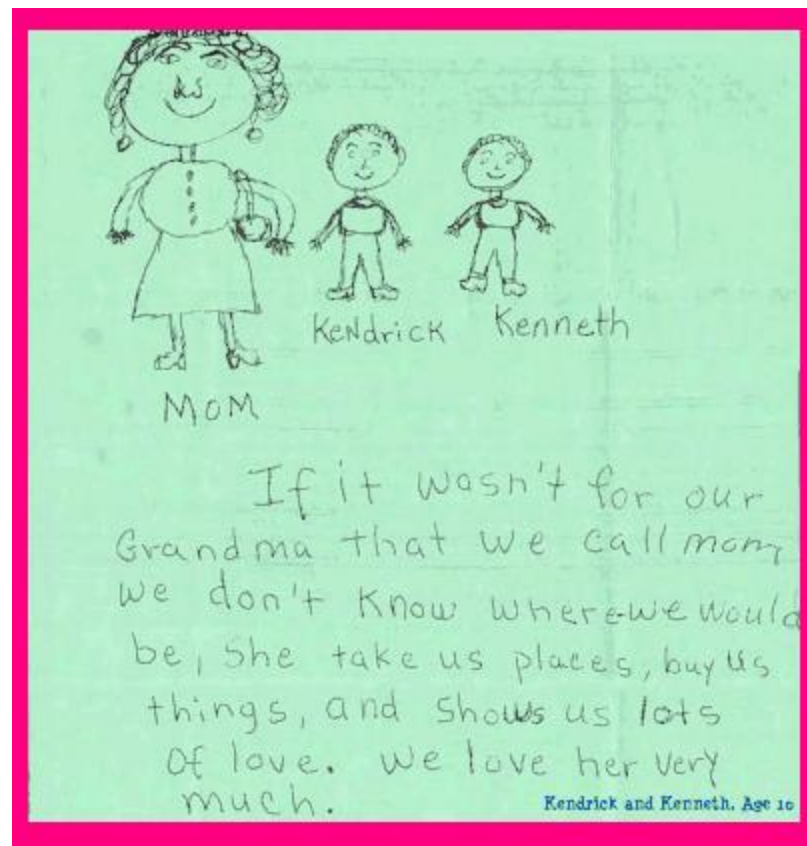 KeNdrick Kenneth
MOM
If it wasn't for our
Grandma that we call mom,
we don't know where we would
be, She take us places, buy us
things, and shows us lots
of love. We love her very
much.
Kendrick and Kenneth, Age 10